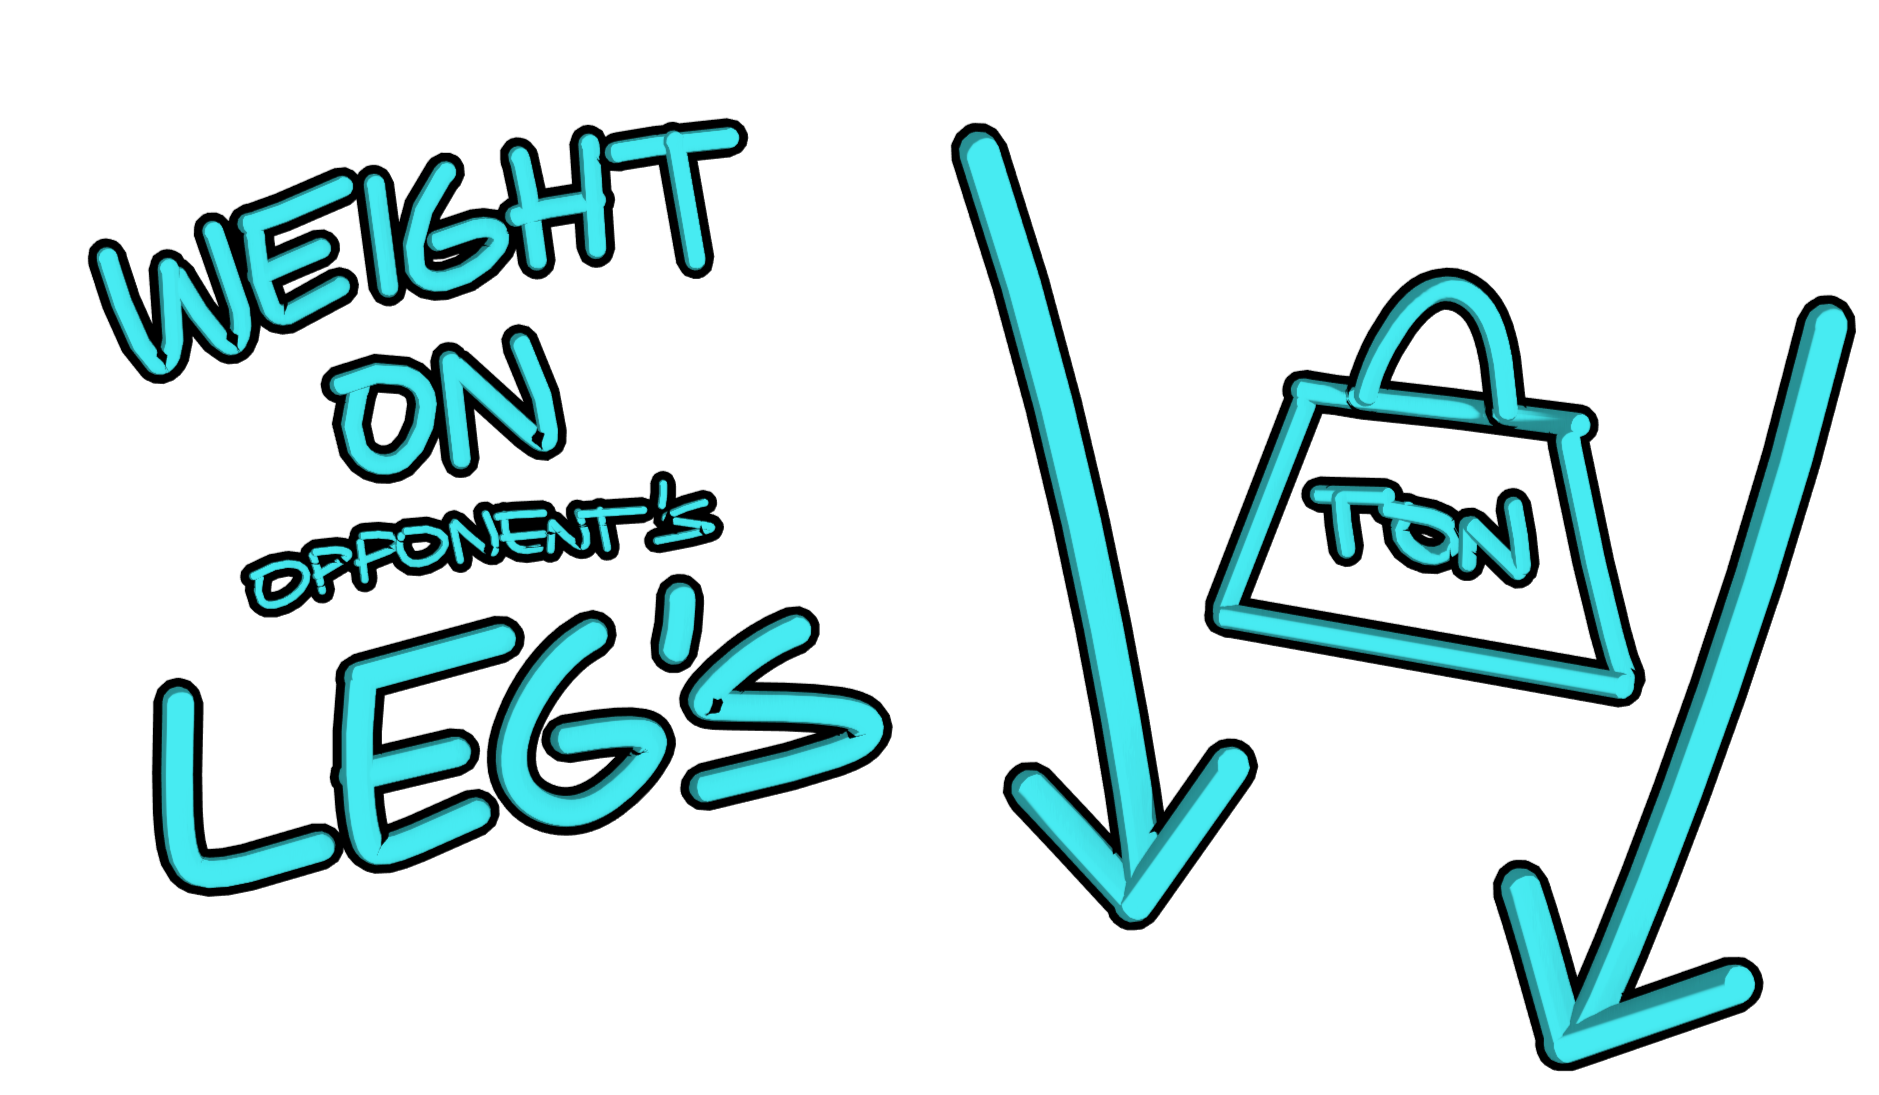 WEIGHT
ON
OPPONENT'S
LEG'S
TON